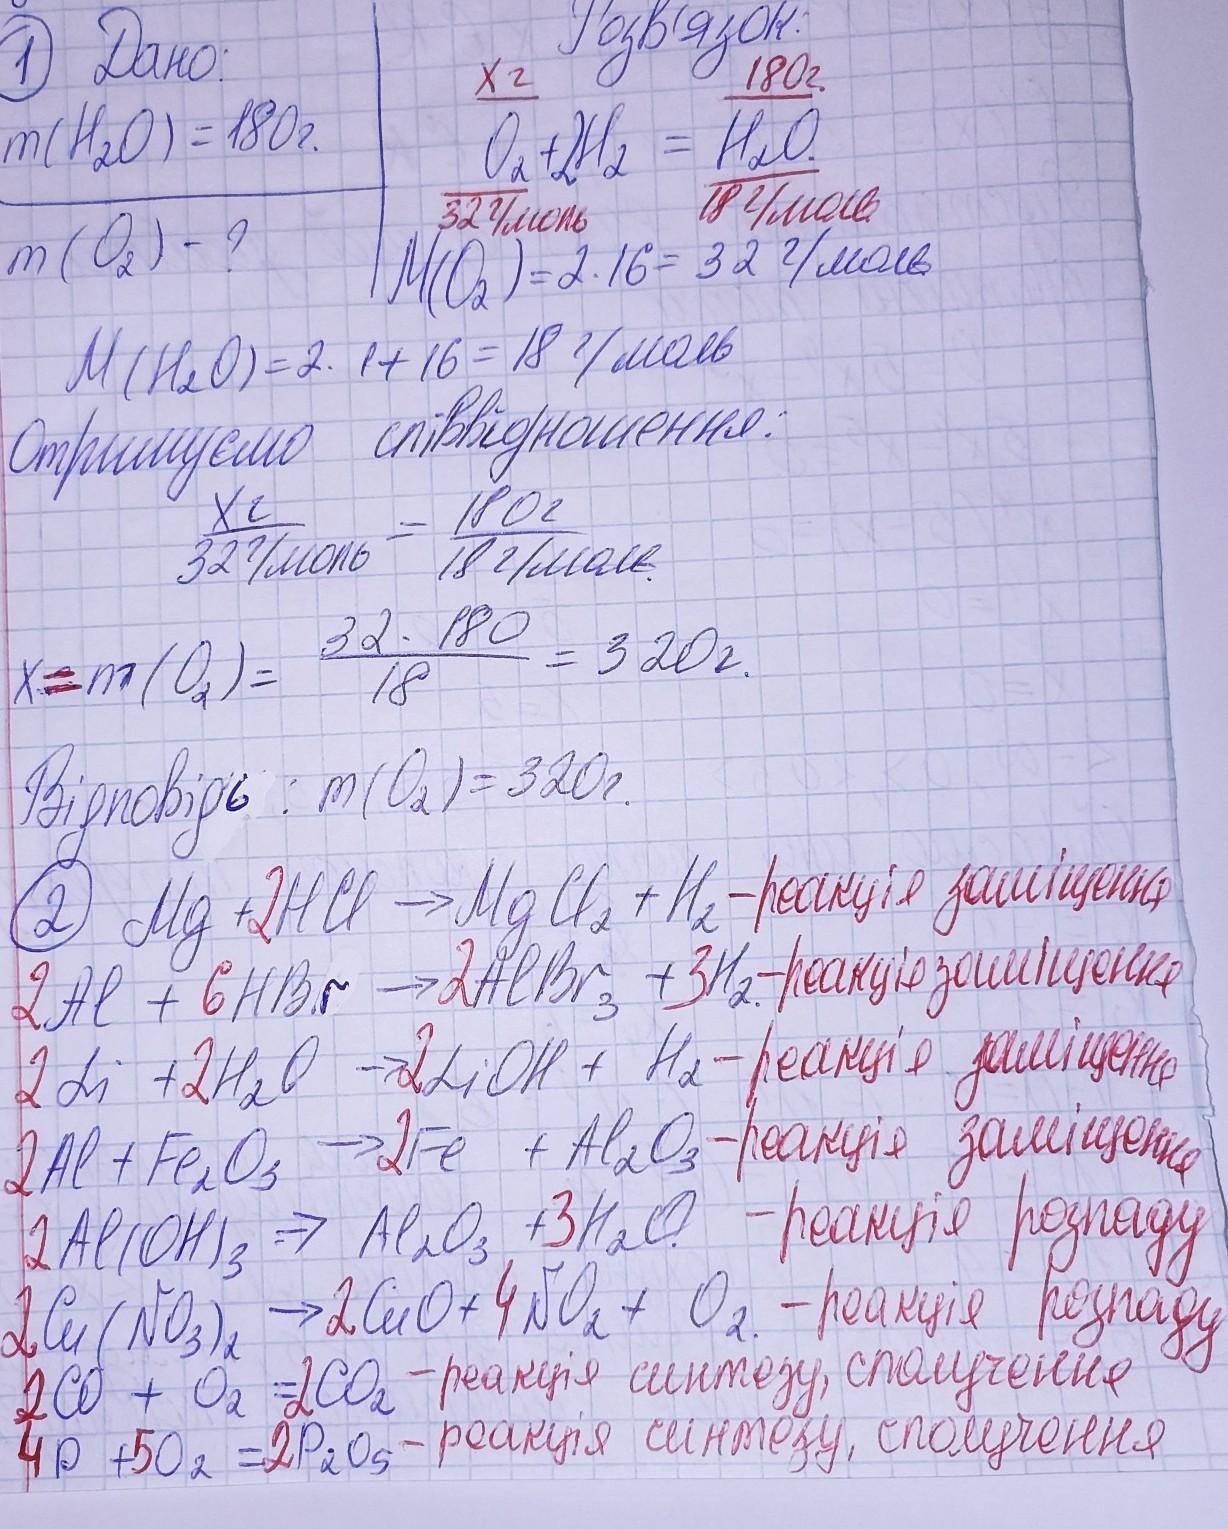 1 Дано:
Розв'язок:
m(H₂O) = 180г.
x г 180г.
O₂ + 2H₂ = H₂O.
32 г/моль 18 г/моль
m(O₂) - ?
M(O₂) = 2·16 = 32 г/моль
M(H₂O) = 2·1 + 16 = 18 г/моль
Отримуємо співвідношення:
x г / 32 г/моль = 180г / 18 г/моль.
x = m(O₂) = 32·180 / 18 = 320г.
Відповідь: m(O₂) = 320г.
2 Mg + 2HCl → MgCl₂ + H₂ - реакція заміщення
2Al + 6HBr → 2AlBr₃ + 3H₂. - реакція заміщення
2Li + 2H₂O → 2LiOH + H₂ - реакція заміщення
2Al + Fe₂O₃ → 2Fe + Al₂O₃ - реакція заміщення
2Al(OH)₃ => Al₂O₃ + 3H₂O - реакція розпаду
2Cu(NO₃)₂ → 2CuO + 4NO₂ + O₂. - реакція розпаду
2CO + O₂ = 2CO₂ - реакція синтезу, сполучення
4P + 5O₂ = 2P₂O₅ - реакція синтезу, сполучення